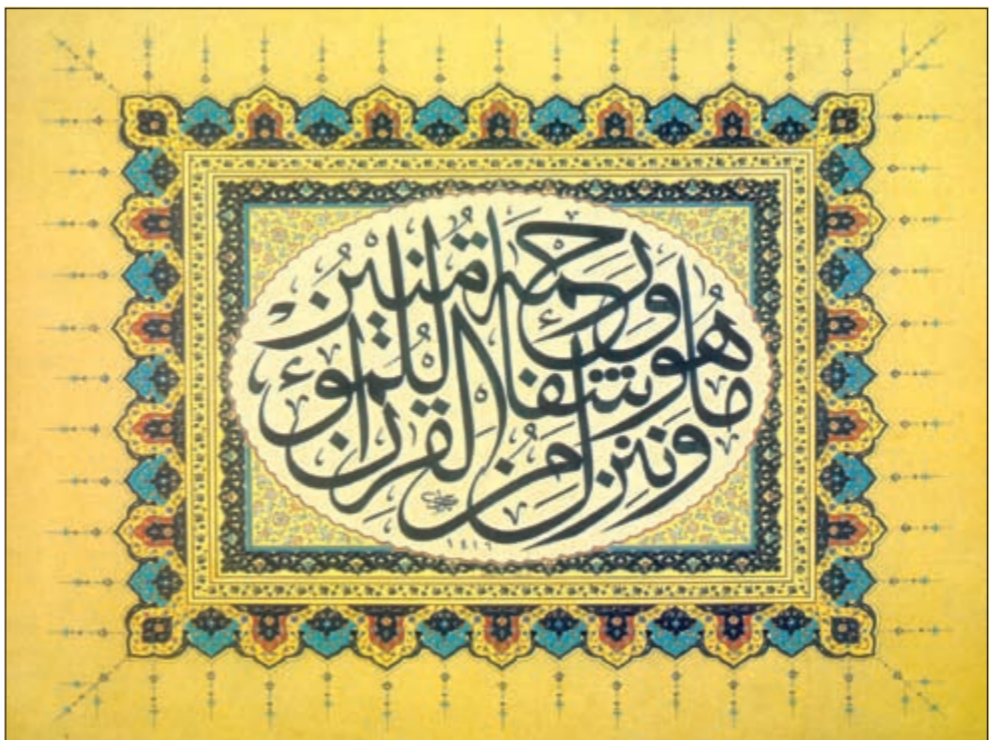 وَنُنَزِّلُ مِنَ الْقُرْآنِ
مَا هُوَ شِفَاءٌ
وَرَحْمَةٌ لِلْمُؤْمِنِينَ
١٤١٦